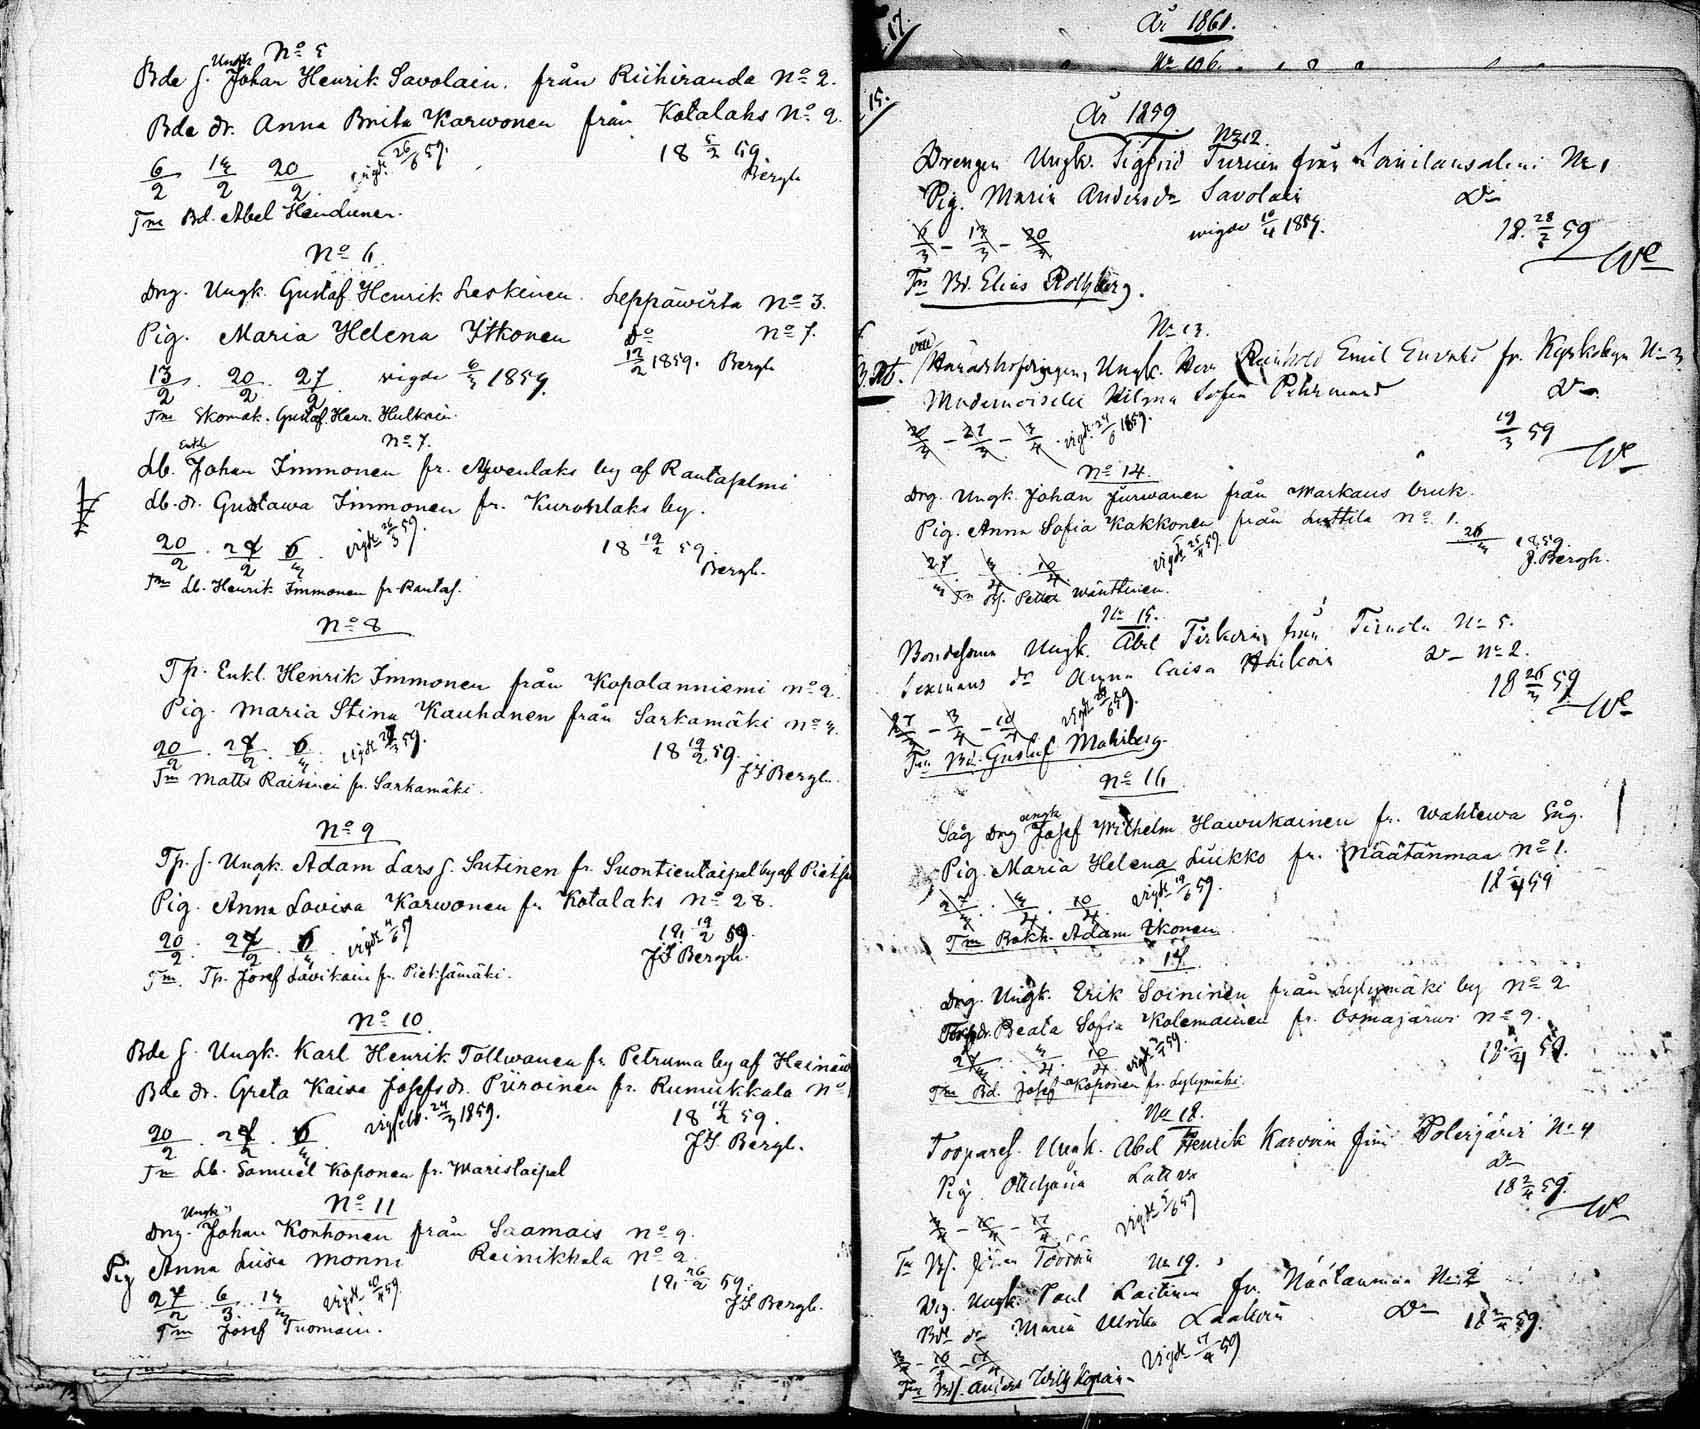 No 5
Bde S. Ungk Johan Henrik Savolain. från Riihiranda No 2.
Bde dr. Anna Brita Karwonen från Kotalaks No 2
6/2 13/2 20/2 vigde 26/6 59. 18 5/2 59.
Bergh
Tm Bd. Abel Hendunen.
No 6
Dng. Ungk. Gustaf Henrik Leskinen. Leppäwirta No 3.
Pig. Maria Helena Itkonen Do No 7.
13/2 . 20/2 . 27/2 vigde 6/3 1859. 12/2 1859. Bergh
Tm Skomak. Gustaf Henr. Hulkoin.
No 7.
Lb. Enkl. Johan Immonen fr. by af Rantasalmi
Lb. dr. Gustawa Immonen fr. Kurohlaks by.
20/2 . 27/2 6/3 . vigde 26/3 59. 18 19/2 59.
Bergh.
Tm Lb. Henrik Immonen fr. Rantas.
No 8
Tp. Enkl. Henrik Immonen från Kopolanniemi No 2.
Pig. Maria Stina Kauhanen från Sarkamäki No 3.
20/2 . 27/2 . 6/3 . vigde 27/3 59. 18 19/2 59.
JF Bergh.
Tm Matts Raisinen fr. Sarkamäki.
No 9
Tp. S. Ungk. Adam Lars S. Sutinen fr. Suontientaipal by af
Pig. Anna Lovisa Karwonen fr. Kotalaks No 28.
20/2 . 27/2 . 6/3 . vigde 59 18 19/2 59.
JF Bergh.
Tm. Tp. Josef Lavikain fr. Pieksämäki.
No 10
Bde S. Ungk. Karl Henrik Tollwanen fr. Petruma by af
Bde dr. Greta Kaisa Josefs dr. Piiroinen fr. Rumukkala No
20/2 . 27/2 . 6/3 . 24/3 1859. 18 19/2 59.
JF Bergh.
Tm Lb. Samuel Koponen fr. Maristaipal
No 11
Dng. Ungk. Johan Konhonen från Saamais No 9.
Pig Anna Luisa Monni Reinikkala No 2.
27/2 . 6/3 . 13/3 vigde 10/4 59. 18 26/2 59.
JF Bergh.
Tm Josef Tuomain.
17.
År 1861.
No 106.
15.
År 1859.
No 12
Drengen Ungk. Sigfrid Turuin från No 1
Pig. Maria Andersdr Savolain Do
6/3 - 13/3 - 20/3 vigde 10/4 1859. 18 28/2 59
We
Tm Bd. Elias Rothberg.
No 13.
vice Häradshöfdingen, Ungk. Herr Reinhold Emil fr. Kyrkobyn No 3
Mademoiselle Hilma Sofia Pehrmand Do
20/3 - 27/3 - 3/4 . vigde 1859. 19/3 59
We
No 14.
Dng. Ungk. Johan Jurwanen från Warkaus bruk.
Pig. Anna Sofia Kakkonen från Luttila No 1.
27/3 3/4 10/4 vigde 25/4 59. 26/3 1859.
J. Bergh.
Tm Bd. Petter Wänttinen.
No 15.
Bondesonen Ungk. Abel från Timola No 5.
Sexmans dr Anna Caisa Häikoin Do No 2.
27/3 - 3/4 - 10/4 vigde 59. 18 26/3 59
We
Tm Bd. Gustaf Mahlberg.
No 16
Såg Dng ungk Josef Wilhelm Hawukainen fr. Wahtewa Såg.
Pig. Maria Helena Luikko fr. Näätänmaa No 1.
27/3 . 3/4 . 10/4 . vigde 19/6 59. 18 /4 59
Tm Bokh. Adam Ikonen
17.
Dng. Ungk. Erik Soininen från Sylymäki by No 2
Torp dr. Beata Sofia Kolemainen fr. Osmajärwi No 9.
27/3 . 3/4 . 10/4 vigde 59. 18 /4 59.
Tm Bd. Josef Koponen fr. Sylymäki.
No 18.
Torpares. Ungk. Abel Henrik Karvoin från Polvijärvi No 4
Pig. Do
3/4 - 10/4 - 17/4 vigde 5/6 59 18 2/4 59.
We
Tm
No 19.
Dng. Ungk. Paul Laitinen fr. Näätänmaa No 2
Bde dr Maria Ulrika Do 18 2/4 59.
3/4 - 10/4 - 17/4 vigde 17/4 59
Tm Bds. Anders